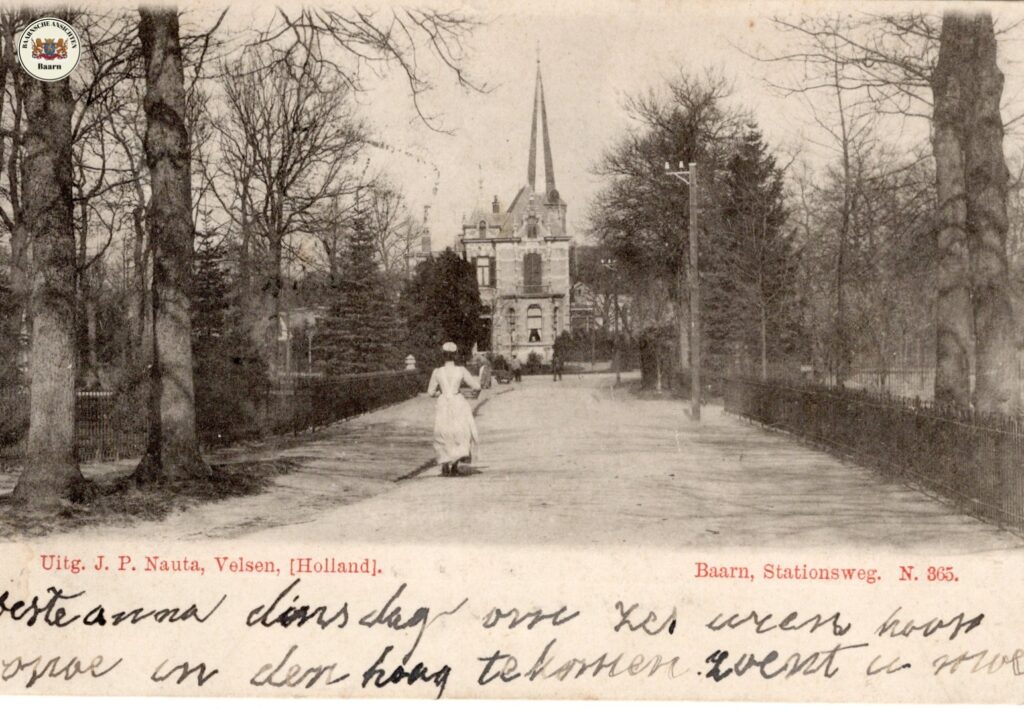 BAARNSCHE ANSICHTEN
Baarn
Uitg. J. P. Nauta, Velsen, [Holland].
Baarn, Stationsweg. N. 365.
este anna dinsdag om zes uren hoop
opoe in den haag te komen zoent u